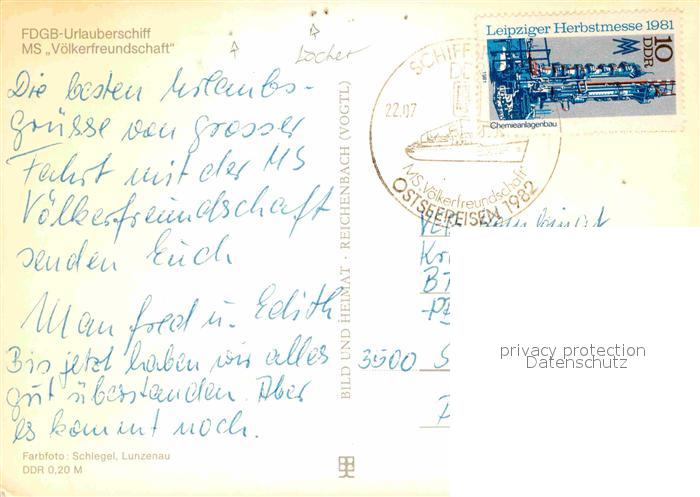 FDGB-Urlauberschiff
MS „Völkerfreundschaft"
Locher
Die besten Urlaubs-
grüsse von grosser
Fahrt mit der MS
Völkerfreundschaft
senden Euch
Manfred u. Edith
Bis jetzt haben wir alles
gut überstanden. Aber
es kommt noch.
Farbfoto: Schlegel, Lunzenau
DDR 0,20 M
BILD UND HEIMAT · REICHENBACH (VOGTL)
22.07
MS „Völkerfreundschaft"
OSTSEEREISEN 1982
Leipziger Herbstmesse 1981
10
DDR
1981
Chemieanlagenbau
3500 S
privacy protection
Datenschutz